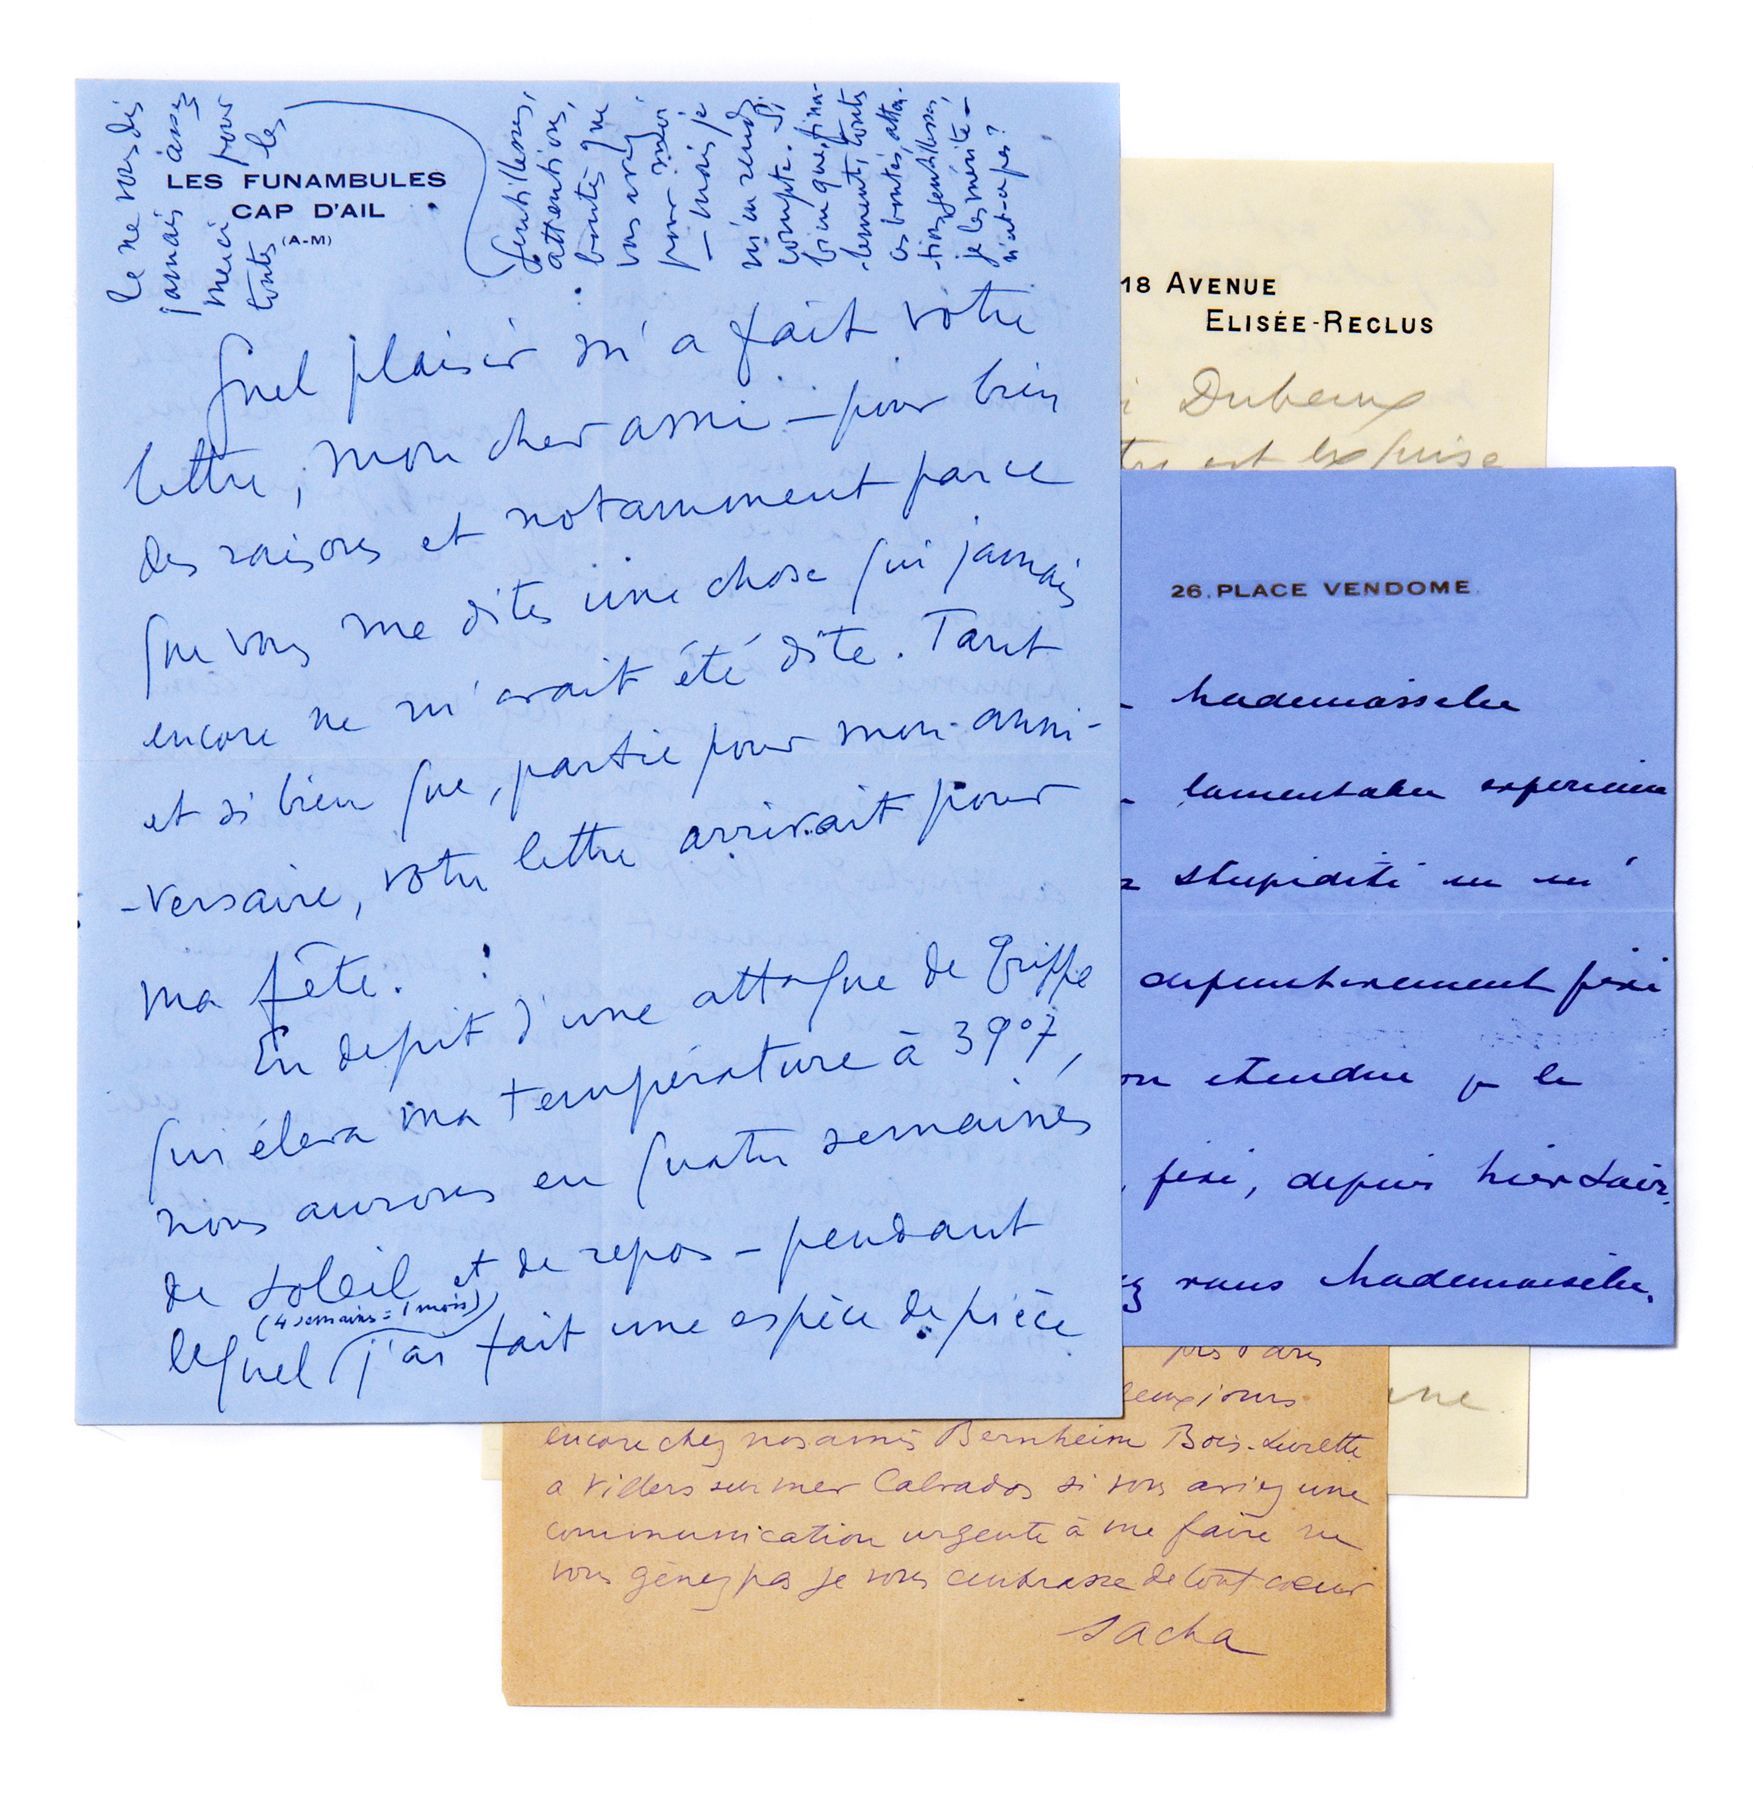 LES FUNAMBULES
CAP D'AIL
(A-M)
Je ne vous dis
jamais assez
merci pour
toutes les
gentillesses,
attentions,
bontés que
vous avez
pour moi
– mais je
m'en rends
compte. Si
bien que, fina-
-lement, toutes
ces bontés, atten-
-tions, gentillesses,
je les mérite –
n'est-ce pas?
Quel plaisir m'a fait votre
lettre, mon cher ami – pour bien
des raisons et notamment parce
que vous me dites une chose qui jamais
encore ne m'avait été dite. Tant
et si bien que, partie pour mon anni-
-versaire, votre lettre arrivait pour
ma fête.
En depit d'une attaque de grippe
qui éleva ma température à 39°7,
nous aurons eu quatre semaines
de soleil et de repos – pendant
(4 semaines = 1 mois)
lequel j'ai fait une espèce de pièce
18 AVENUE
ELISÉE-RECLUS
Dubeux
est exquise
26. PLACE VENDOME
Mademoiselle
lamentable experience
stupidité
fixé
etendue
fixé, depuis hier soir,
vous Mademoiselle.
près Paris
deux jours
encore chez nos amis Bernheim Bois-Lurette
a Villers sur mer Calvados si vous aviez une
communication urgente à me faire ne
vous gênez pas je vous embrasse de tout coeur
Sacha